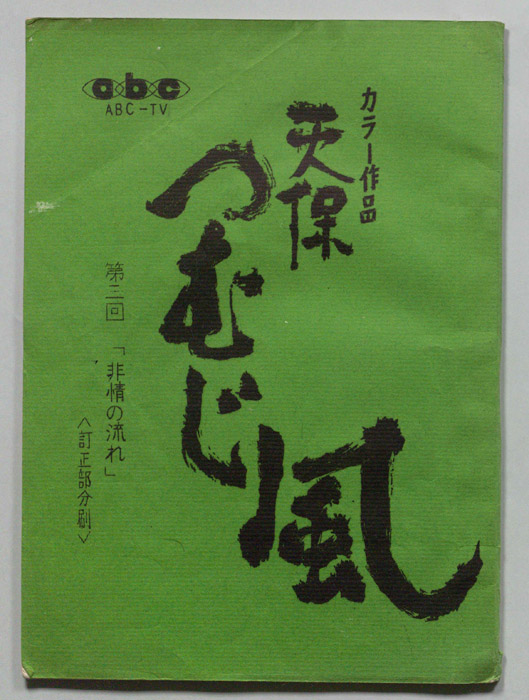 abc
ABC-TV
カラー作品
天保
つむじ風
第三回 「非情の流れ」
<訂正部分刷>